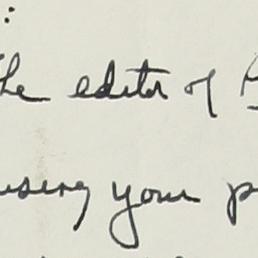 :
the editor of
using your p